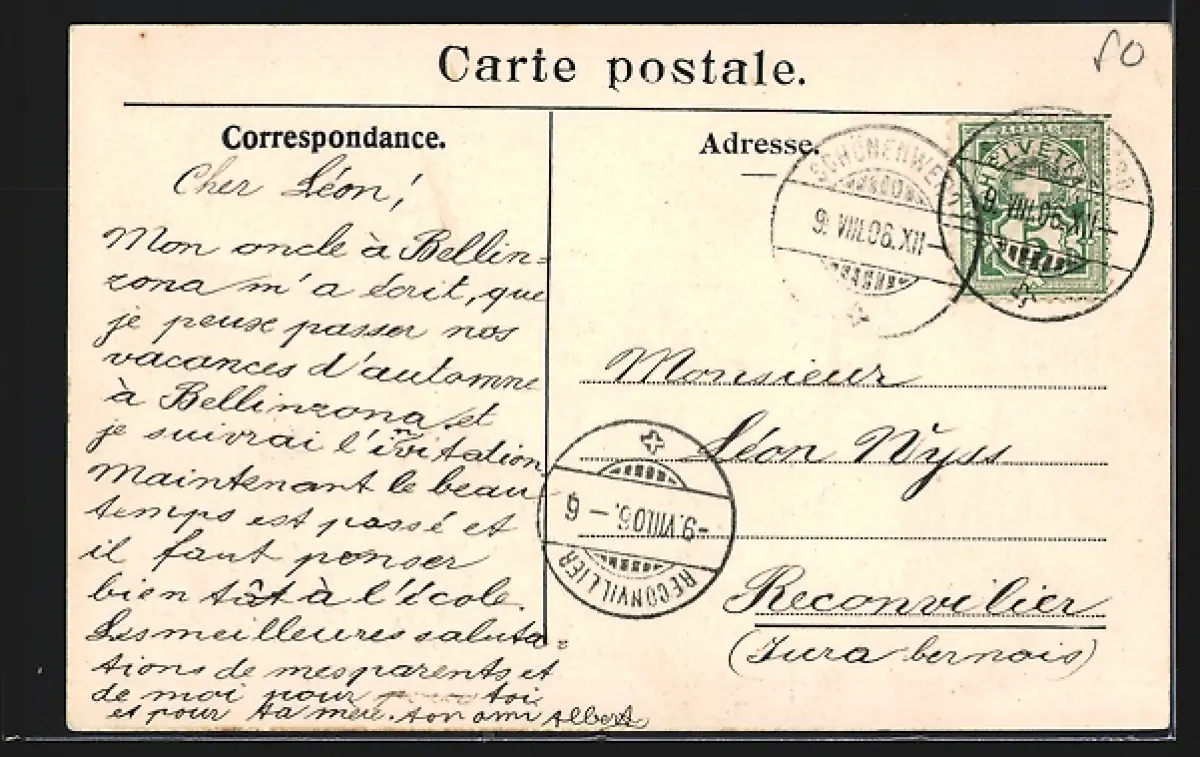 Carte postale.
80
Correspondance.
Cher Léon!
Mon oncle à Bellin=
zona m'a écrit, que
je peux passer nos
vacances d'automne
à Bellinzona et
je suivrai l'invitation
Maintenant le beau
temps est passé et
il faut penser
bien tôt à l'école.
Les meilleures saluta=
tions de mes parents et
de moi pour toi
et pour ta mère. ton ami Albert
Adresse.
SCHÖNENWERD
9. VIII.06. XII
HELVETIA
9. VIII.06. XII
5
Monsieur
Léon Wyss
Reconvilier
(Jura bernois)
-9.VIII.06.-6
RECONVILLIER